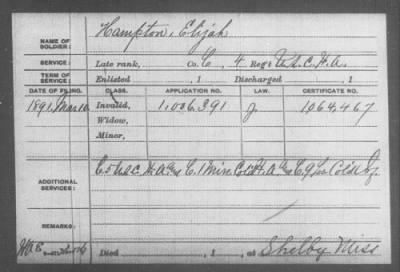 NAME OF SOLDIER: Hampton, Elijah
SERVICE: Late rank, Co. C, 4 Reg't U.S.C.H.A.
TERM OF SERVICE: Enlisted , 1 Discharged , 1
DATE OF FILING. CLASS. APPLICATION NO. LAW. CERTIFICATE NO.
1891, Mar 10 Invalid, 1,006,391 J. 1,064,467
Widow,
Minor,
ADDITIONAL SERVICES: C. 5 U.S.C. H.A. C. 1 Miss Cold H.A. C. 9 La Cold
REMARKS:
Died , 1 , at Shelby Miss